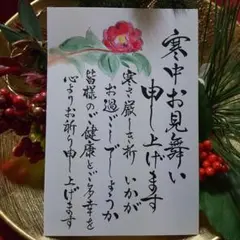 寒中お見舞い
申し上げます
寒さ厳しき折 いかが
お過ごしでしょうか
皆様のご健康とご多幸を
心よりお祈り申し上げます